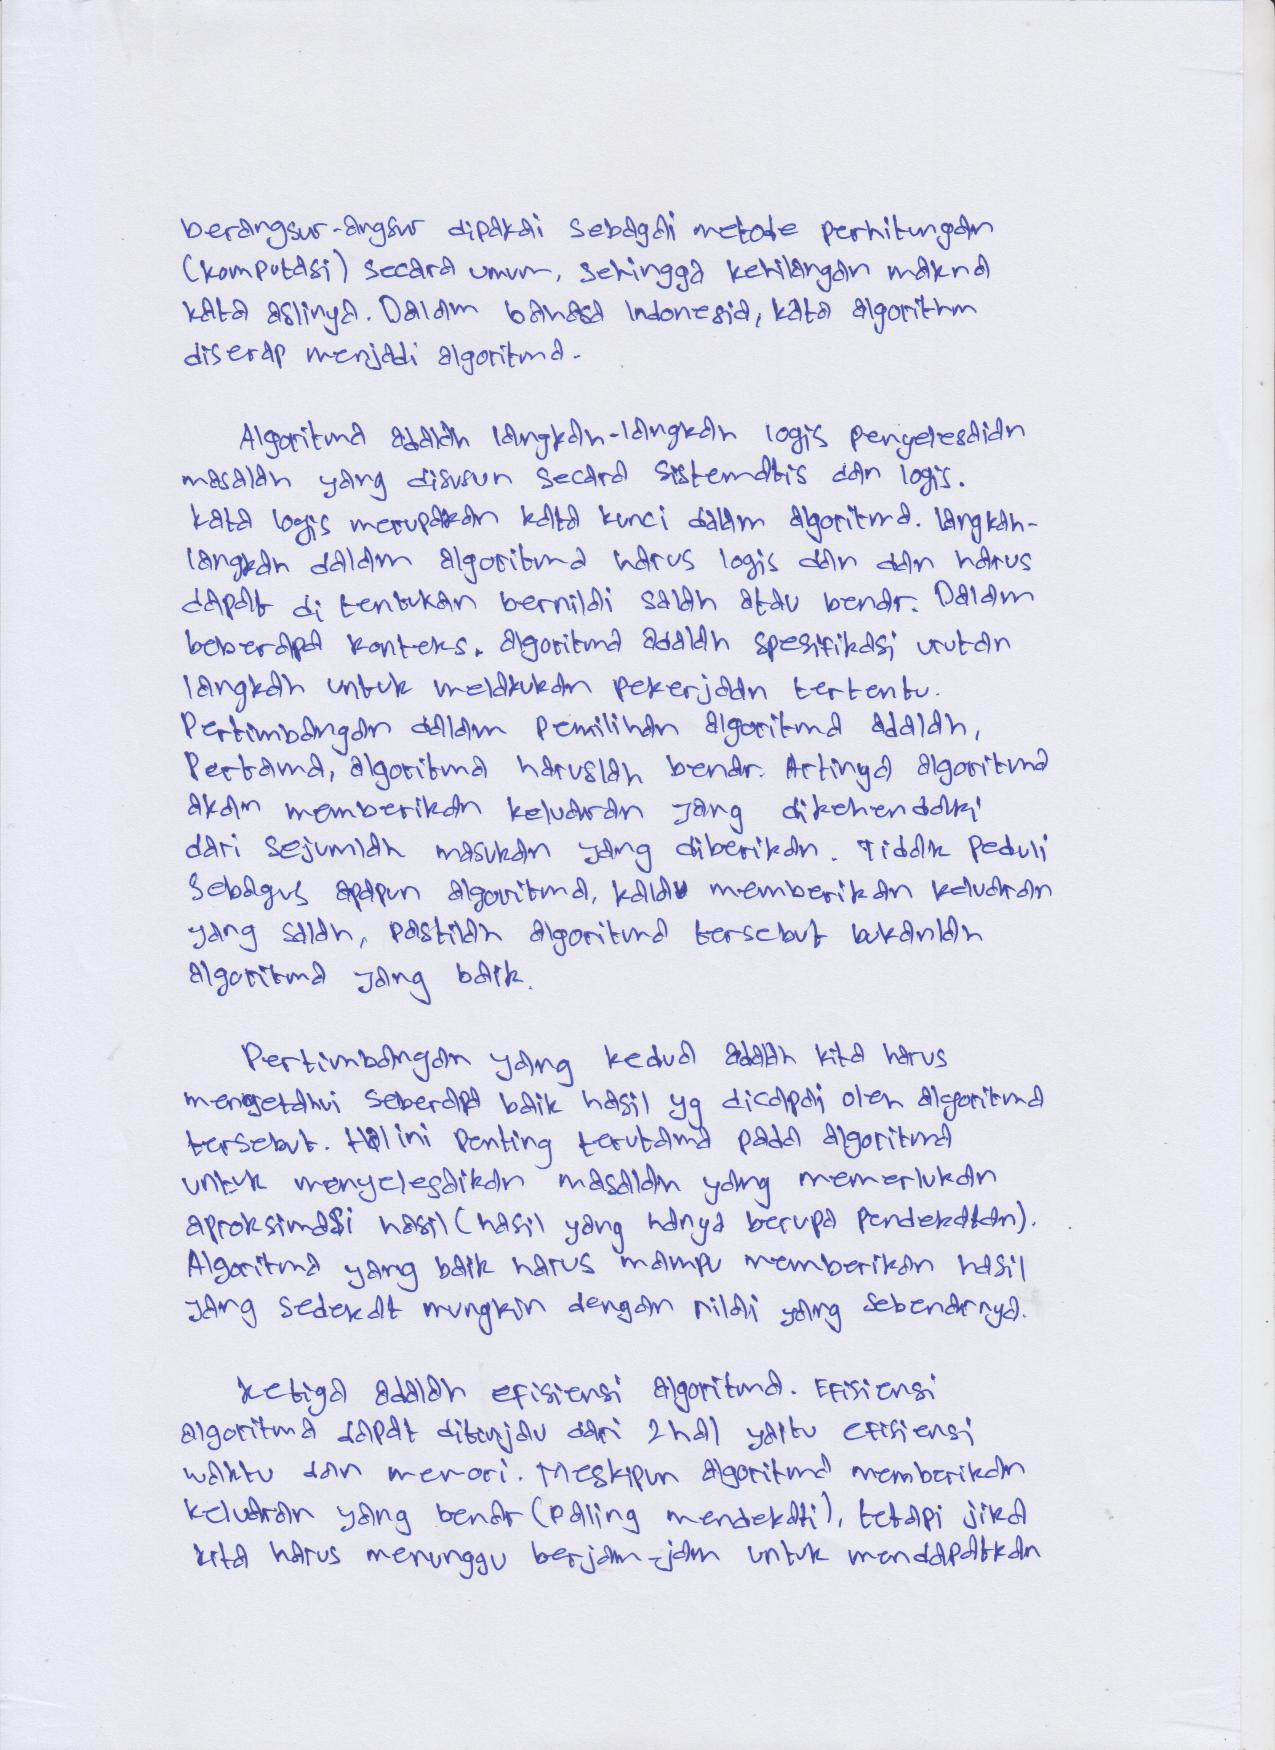 berangsur-angsur dipakai sebagai metode perhitungan
(komputasi) secara umum, sehingga kehilangan makna
kata aslinya. Dalam bahasa Indonesia, kata algorithm
diserap menjadi algoritma.
Algoritma adalah langkah-langkah logis penyelesaian
masalah yang disusun secara sistematis dan logis.
kata logis merupakan kata kunci dalam algoritma. langkah-
langkah dalam algoritma harus logis dan dan harus
dapat di tentukan bernilai salah atau benar. Dalam
beberapa konteks. algoritma adalah spesifikasi urutan
langkah untuk melakukan pekerjaan tertentu.
Pertimbangan dalam pemilihan algoritma adalah,
Pertama, algoritma haruslah benar. Artinya algoritma
akan memberikan keluaran yang dikehendaki
dari sejumlah masukan yang diberikan. Tidak peduli
sebagus apapun algoritma, kalau memberikan keluaran
yang salah, pastilah algoritma tersebut bukanlah
algoritma yang baik.
Pertimbangan yang kedua adalah kita harus
mengetahui seberapa baik hasil yg dicapai oleh algoritma
tersebut. Hal ini penting terutama pada algoritma
untuk menyelesaikan masalah yang memerlukan
aproksimasi hasil (hasil yang hanya berupa pendekatan).
Algoritma yang baik harus mampu memberikan hasil
yang sedekat mungkin dengan nilai yang sebenarnya.
Ketiga adalah efisiensi algoritma. Efisiensi
algoritma dapat ditinjau dari 2 hal yaitu efisiensi
waktu dan memori. Meskipun algoritma memberikan
keluaran yang benar (paling mendekati), tetapi jika
kita harus menunggu berjam-jam untuk mendapatkan